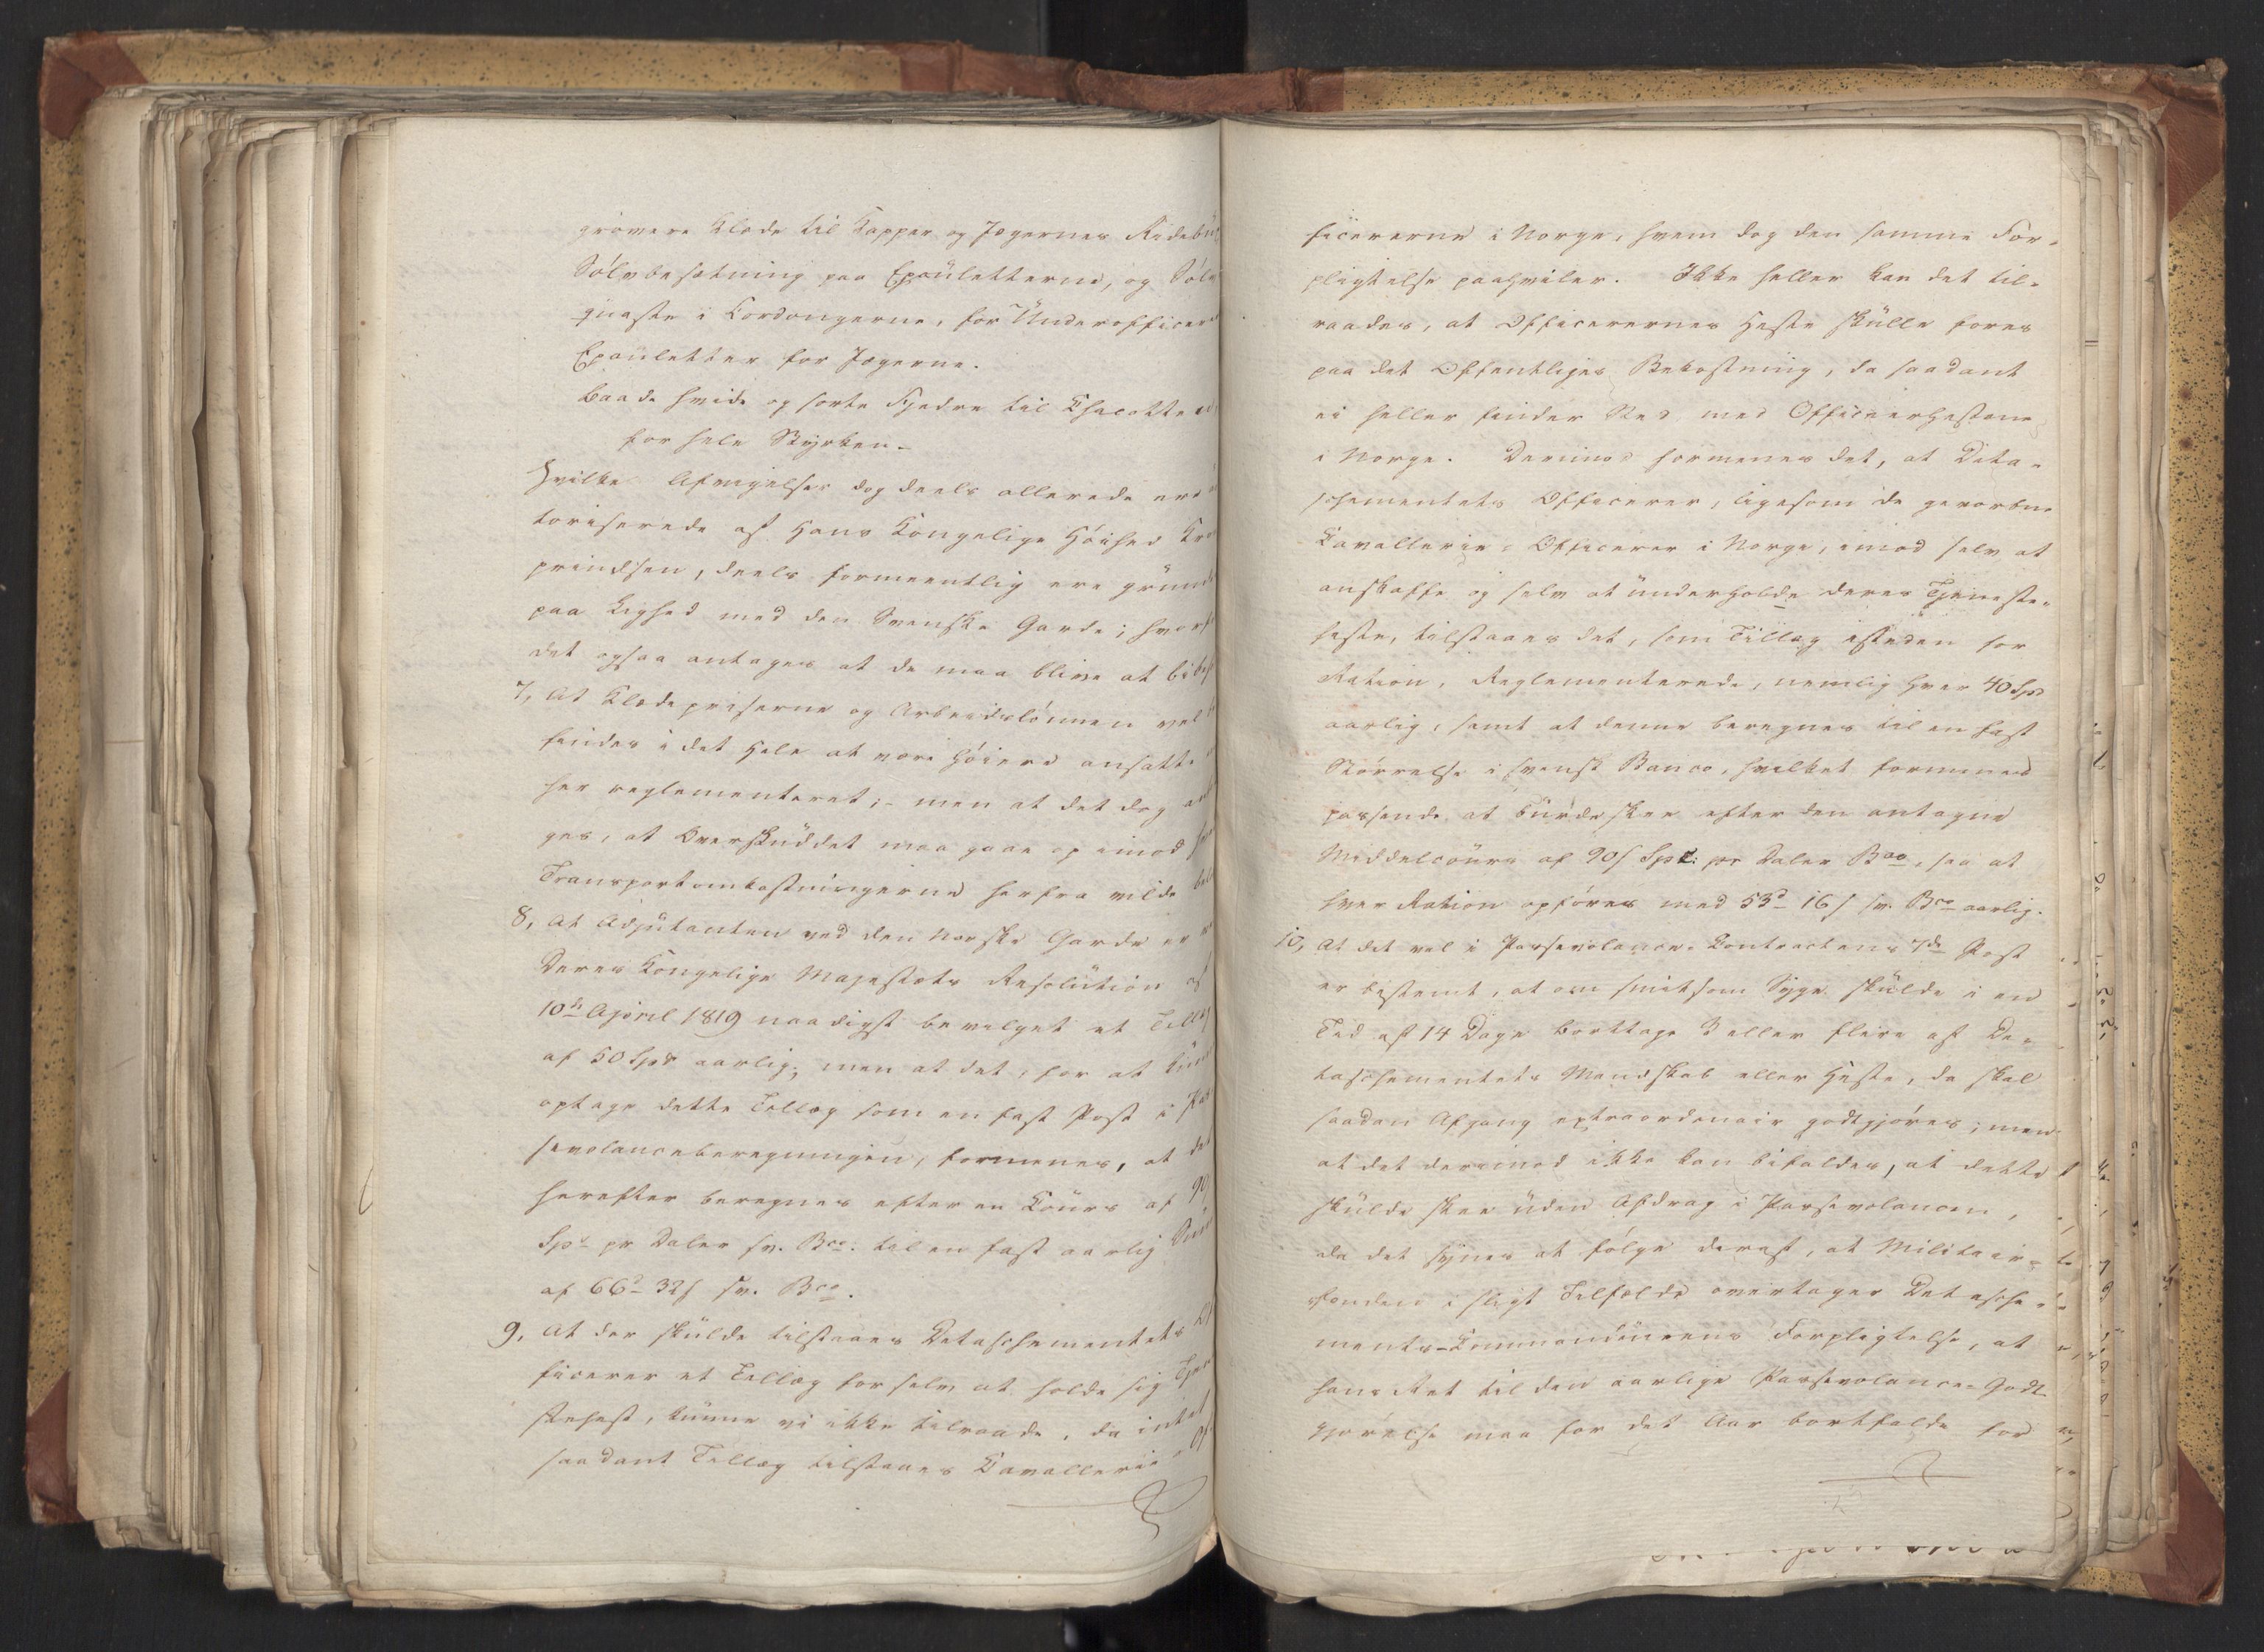 grövere Klæde til Kapper og Jægernes Ridebux
Sölvbesætning paa Epauletterne, og Sölv
qvaste i Cordongerne, for Underofficere
Epauletter for Jægerne.
baade hvide og sorte Fjedre til Chacotterne
for hele Styrken –
Hvilke Afvigelser dog deels allerede ere
toriserede af Hans Kongelige Höihed Kron
prindsen, deels formeentlig ere grunde
paa Lighed med den Svenske Garde; hvorfor
det ogsaa antages at de maa blive at
7, At Klædepriserne og Arbeidslönnen vel
findes i det Hele at være höiere ansatte
her reglementeret; – men at det dog
ges, at Overskuddet maa gaae op imod
Transportomkostningerne herfra vilde
8, At Adjutanten ved den Norske Garde er
Deres Kongelige Majestæts Resolution af
10de April 1819 naadigst bevilget et Tillæg
af 50 Spd aarlig; men at det, for at kunne
optage dette Tillæg som en fast Post i Par
sevolanceberegningen, formenes, at det
herefter beregnes efter en Cours af 90
Spd pr Daler sv. Bco: til en fast aarlig
af 66d 32s sv. Bco.
9, At der skulde tilstaaes Detaschementets Of
ficerer et Tillæg for selv at holde sig Tjene
stehest, kunne vi ikke tilraade, da intet
saadant Tillæg tilstaaes Cavallerie-Of-
ficererne i Norge, hvem dog den samme For-
pligtelse paahviler. Ikke heller kan det til-
raades, at Officerernes Heste skulle fores
paa det Offentliges Bekostning, da saadant
ei heller finder Sted med Officeerhestene
i Norge. Derimod formenes det, at Deta-
schementets Officerer, ligesom de gevorbne
Cavallerie-Officerer i Norge, imod selv at
anskaffe og selv at underholde deres Tjeneste-
heste, tilstaaes det, som Tillæg isteden for
Ration, Reglementerede, nemlig hver 40 Spd
aarlig, samt at denne beregnes til en fast
Störrelse i svensk Banco, hvilket formenes
passende at burde skee efter den antagne
Middelcours af 90s Spec: pr Daler Bco, saa at
hver Ration opföres med 53d 16s sv. Bco aarlig.
10, At det vel i Passevolance-Contractens 7de Post
er bestemt, at om smitsom Syge skulde i en
Tid af 14 Dage borttage 3 eller flere af De-
taschementets Mandskab eller Heste, da skal
saadan Afgang extraordinair godtgjöres; men
at det derimod ikke kan bifaldes, at dette
skulde skee uden Afdrag i Passevolancen,
da det synes at fölge deraf, at Militair-
fonden i sligt Tilfælde overtager Detasche-
ments-Commandeurens Forpligtelse, at
hans Ret til den aarlige Passevolance-Godt-
gjörelse maa for det Aar bortfalde for